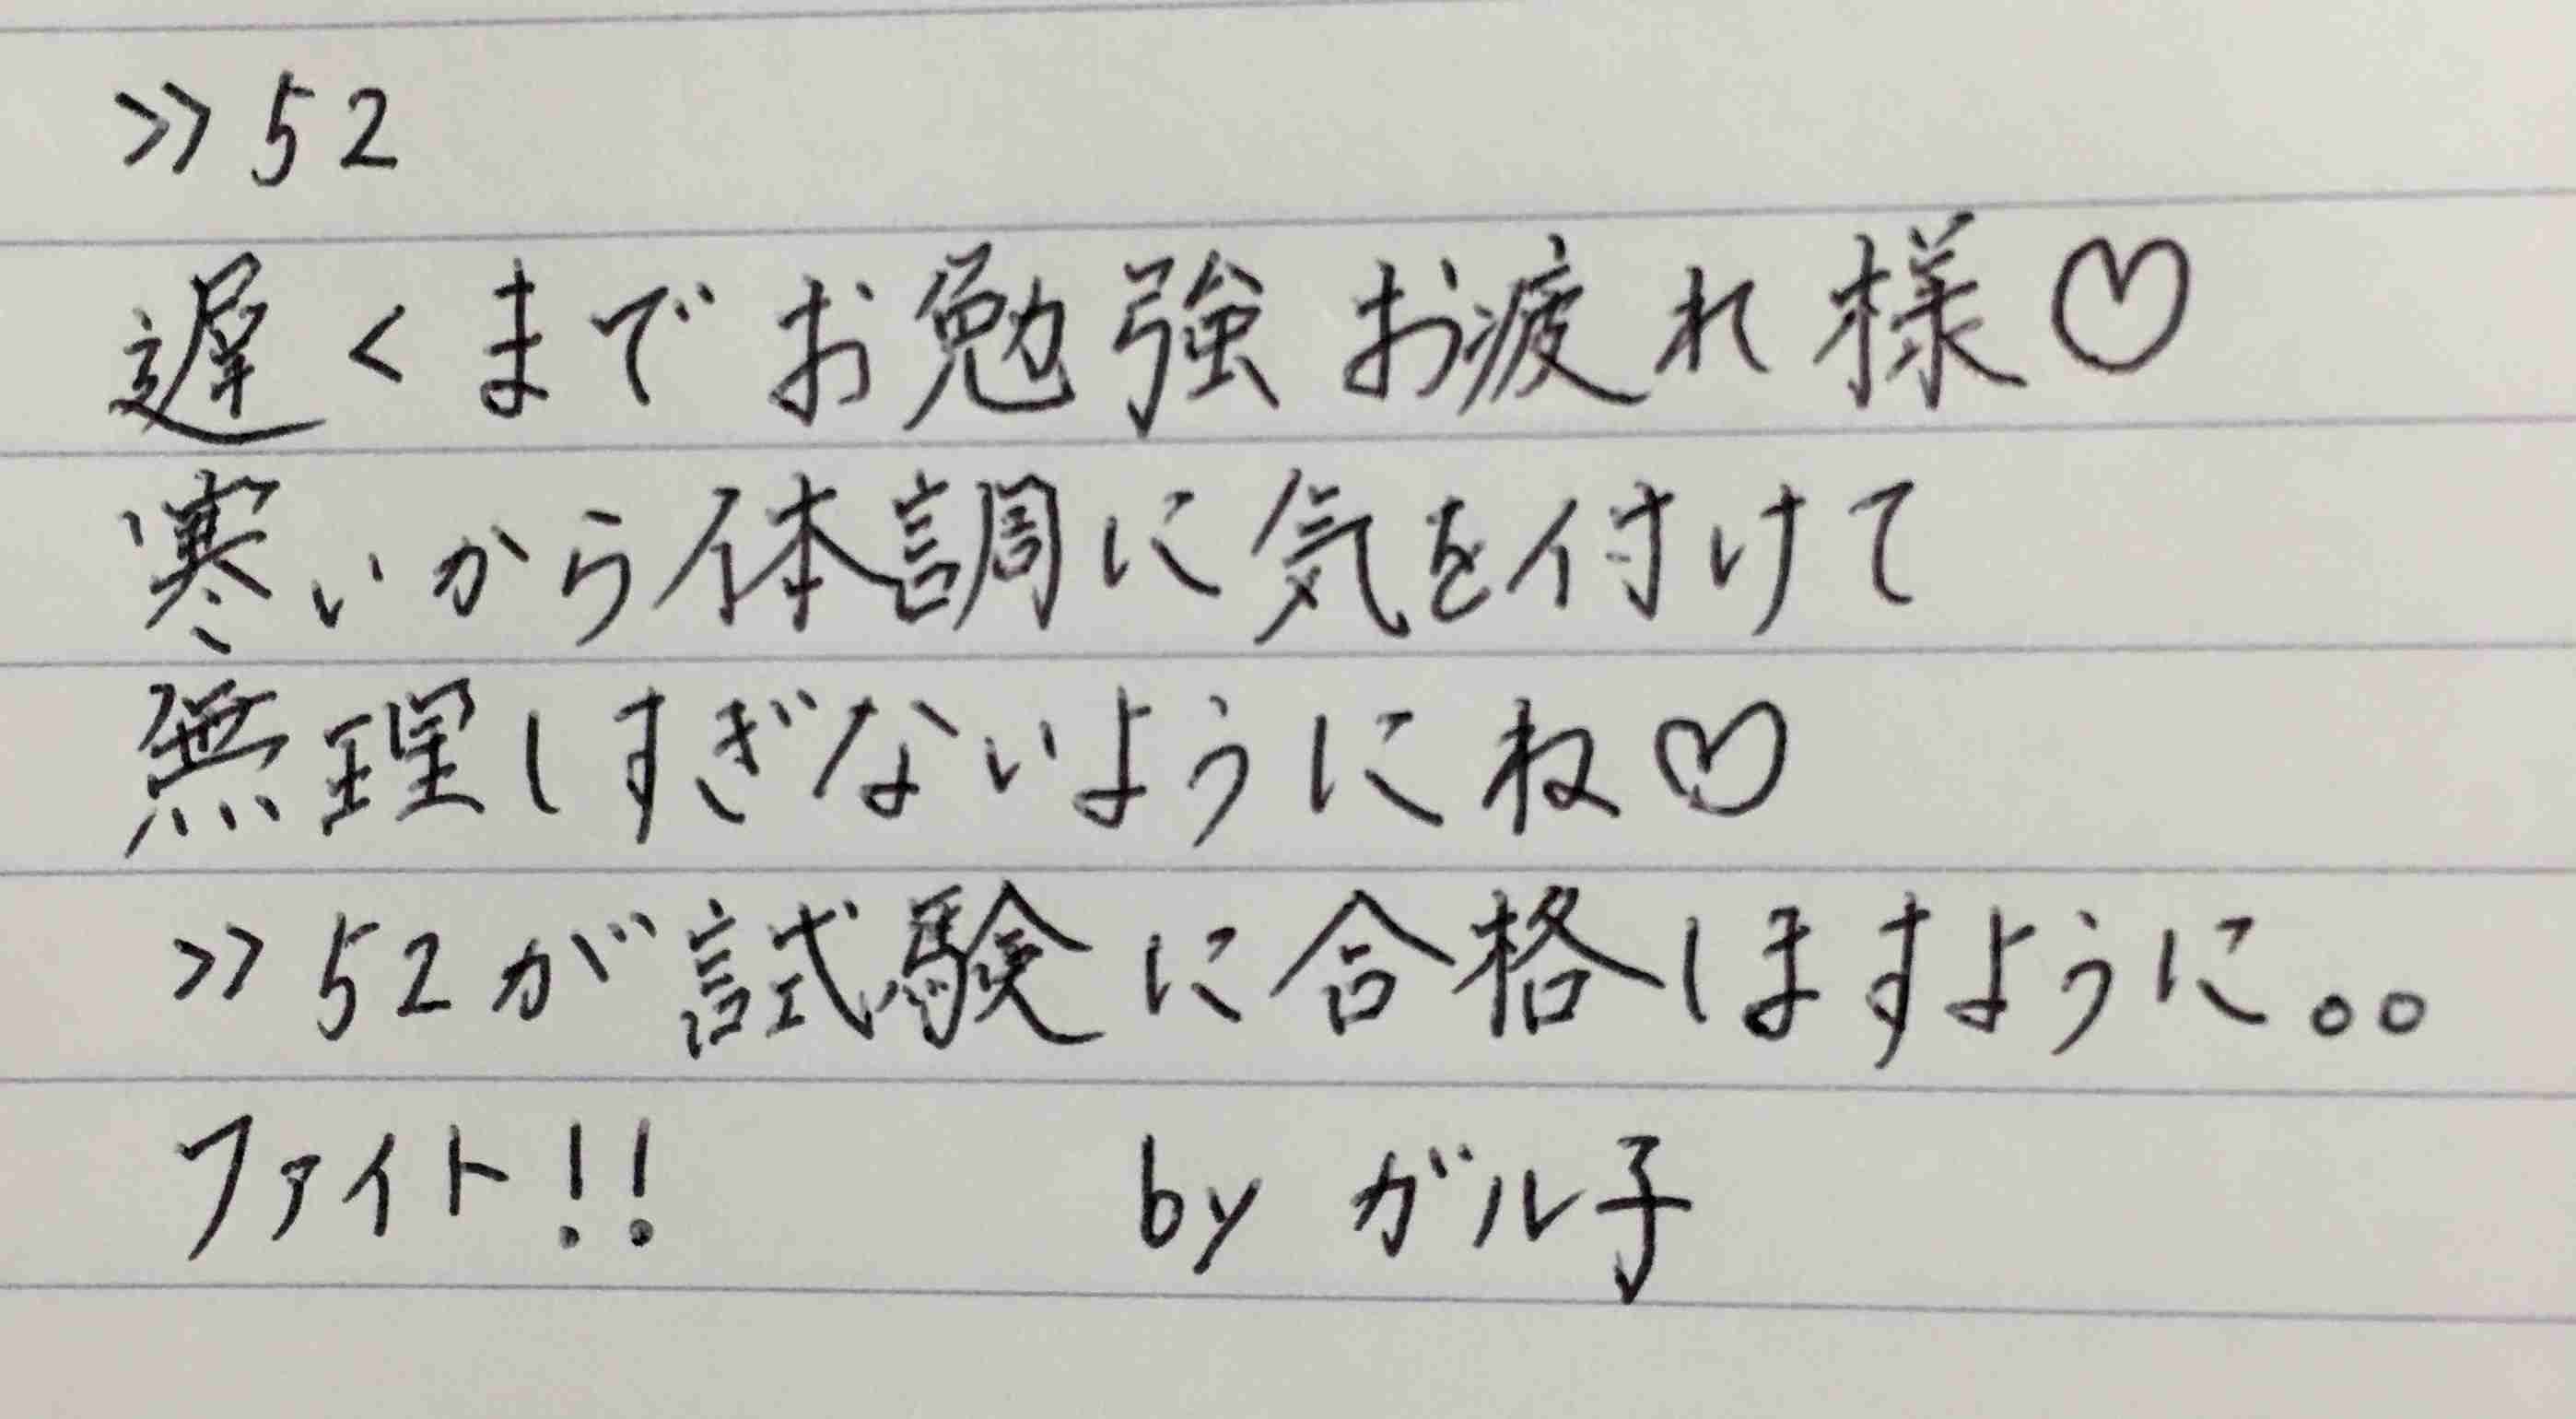 >>52
遅くまでお勉強お疲れ様♡
寒いから体調に気を付けて
無理しすぎないようにね♡
>>52が試験に合格しますように。。
ファイト!!  by ガル子